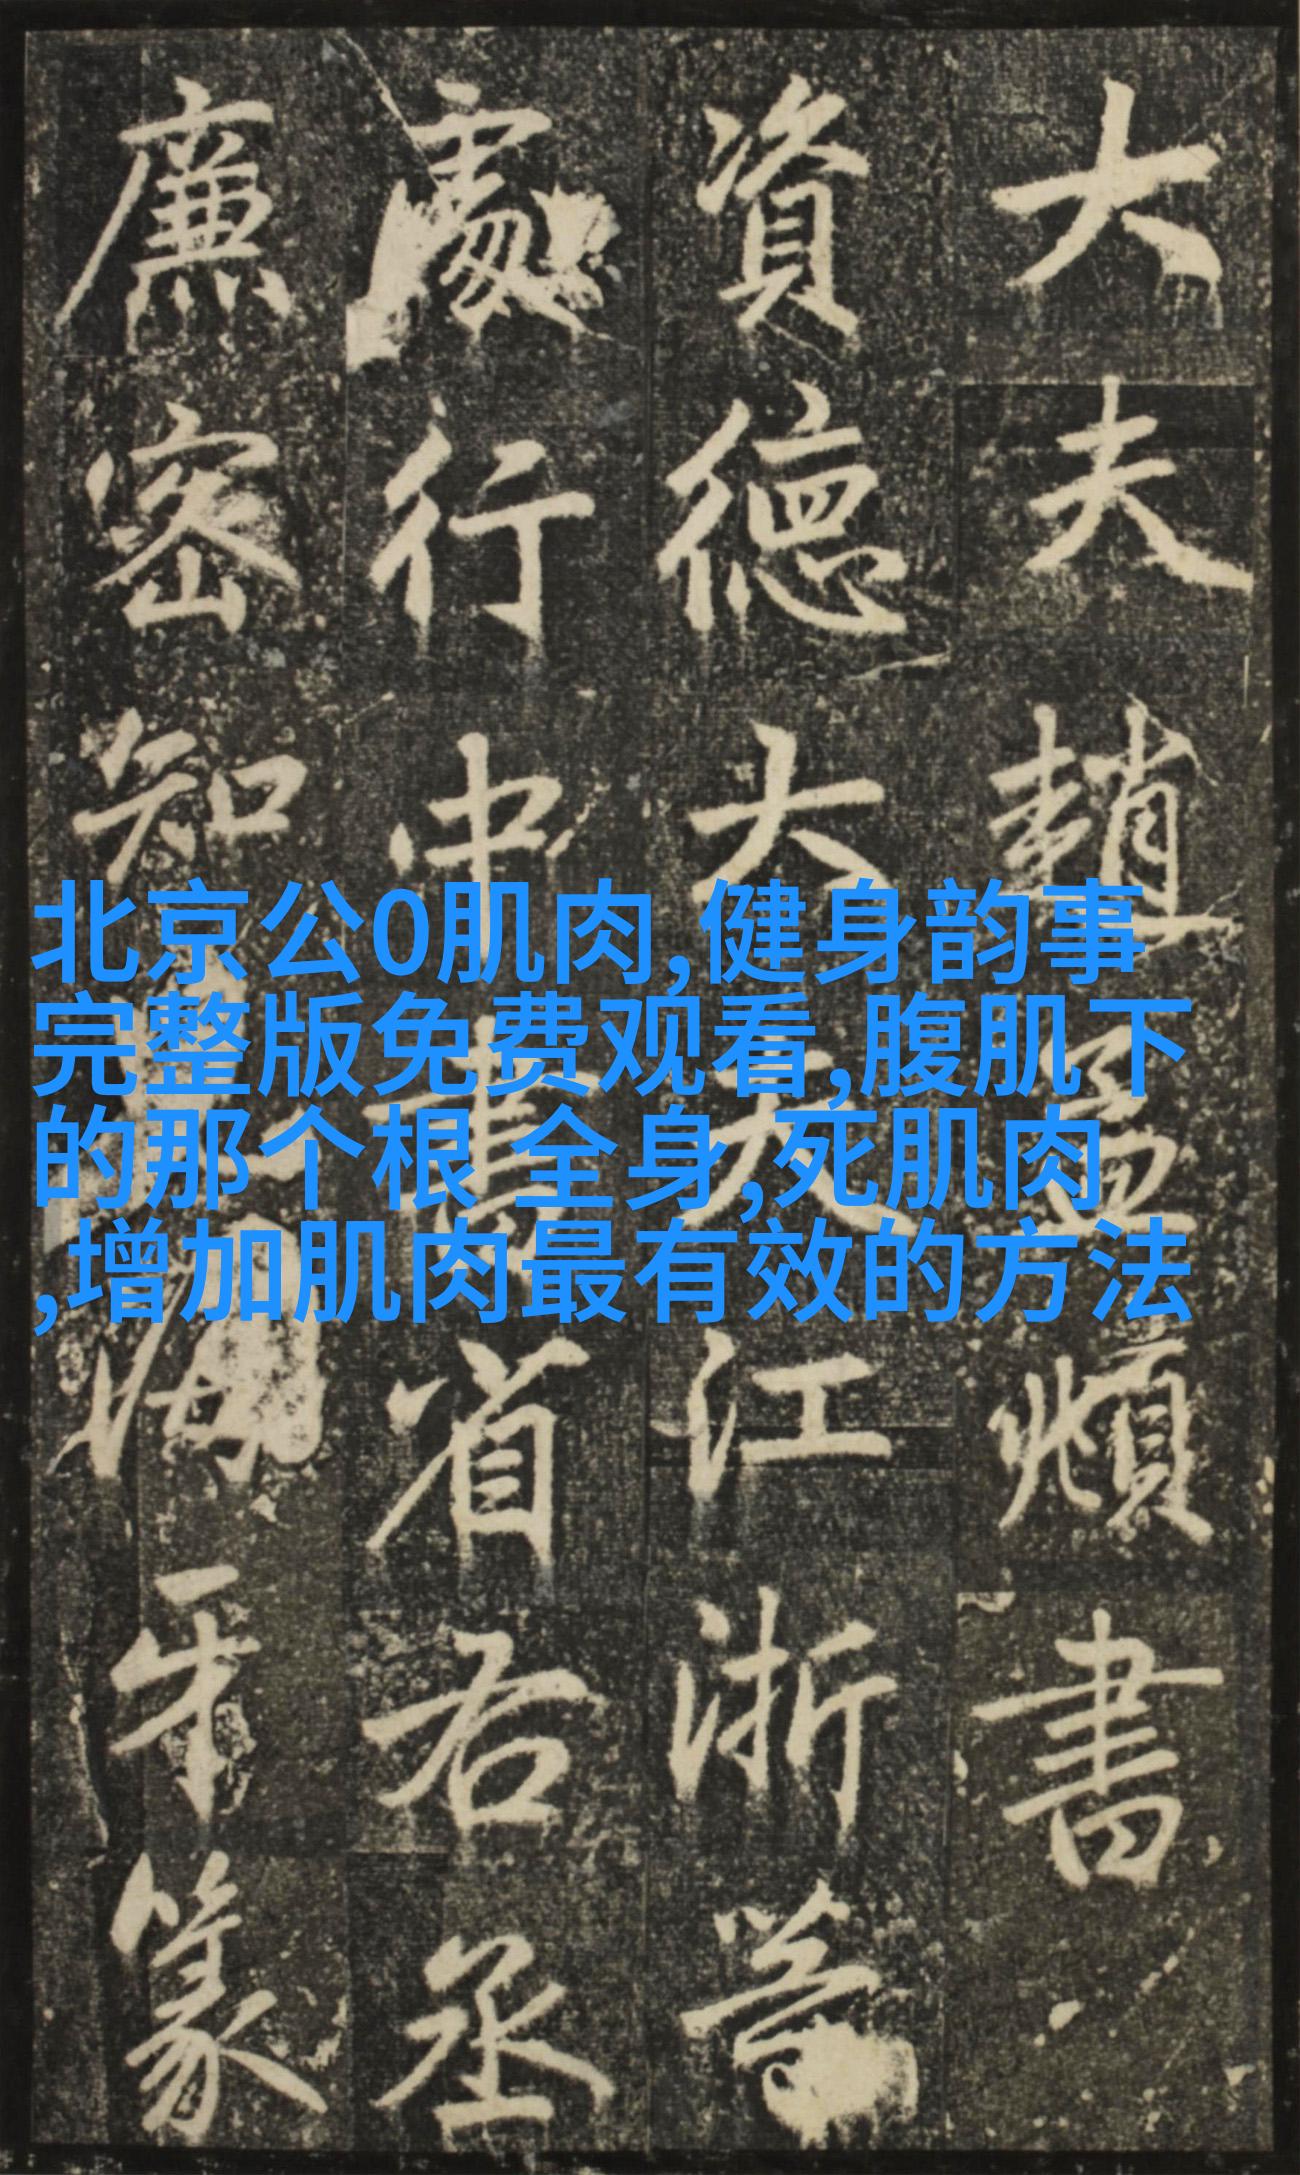 大夫趙孟頫書
資德大夫江浙等
處行中書省右丞
廉密知海牙篆
北京公0肌肉,健身韵事
完整版免费观看,腹肌下
的那个根 全身,死肌肉
,增加肌肉最有效的方法